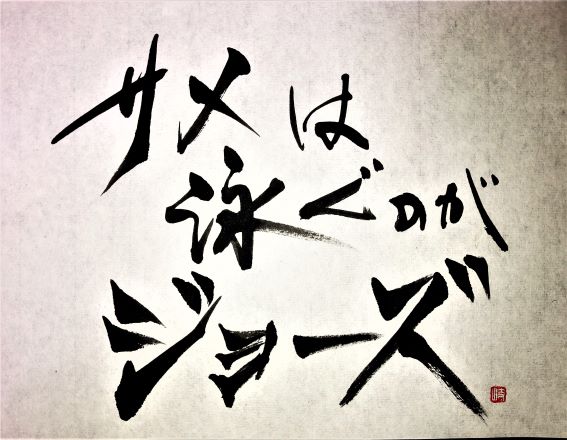 サメは
泳ぐのが
ジョーズ